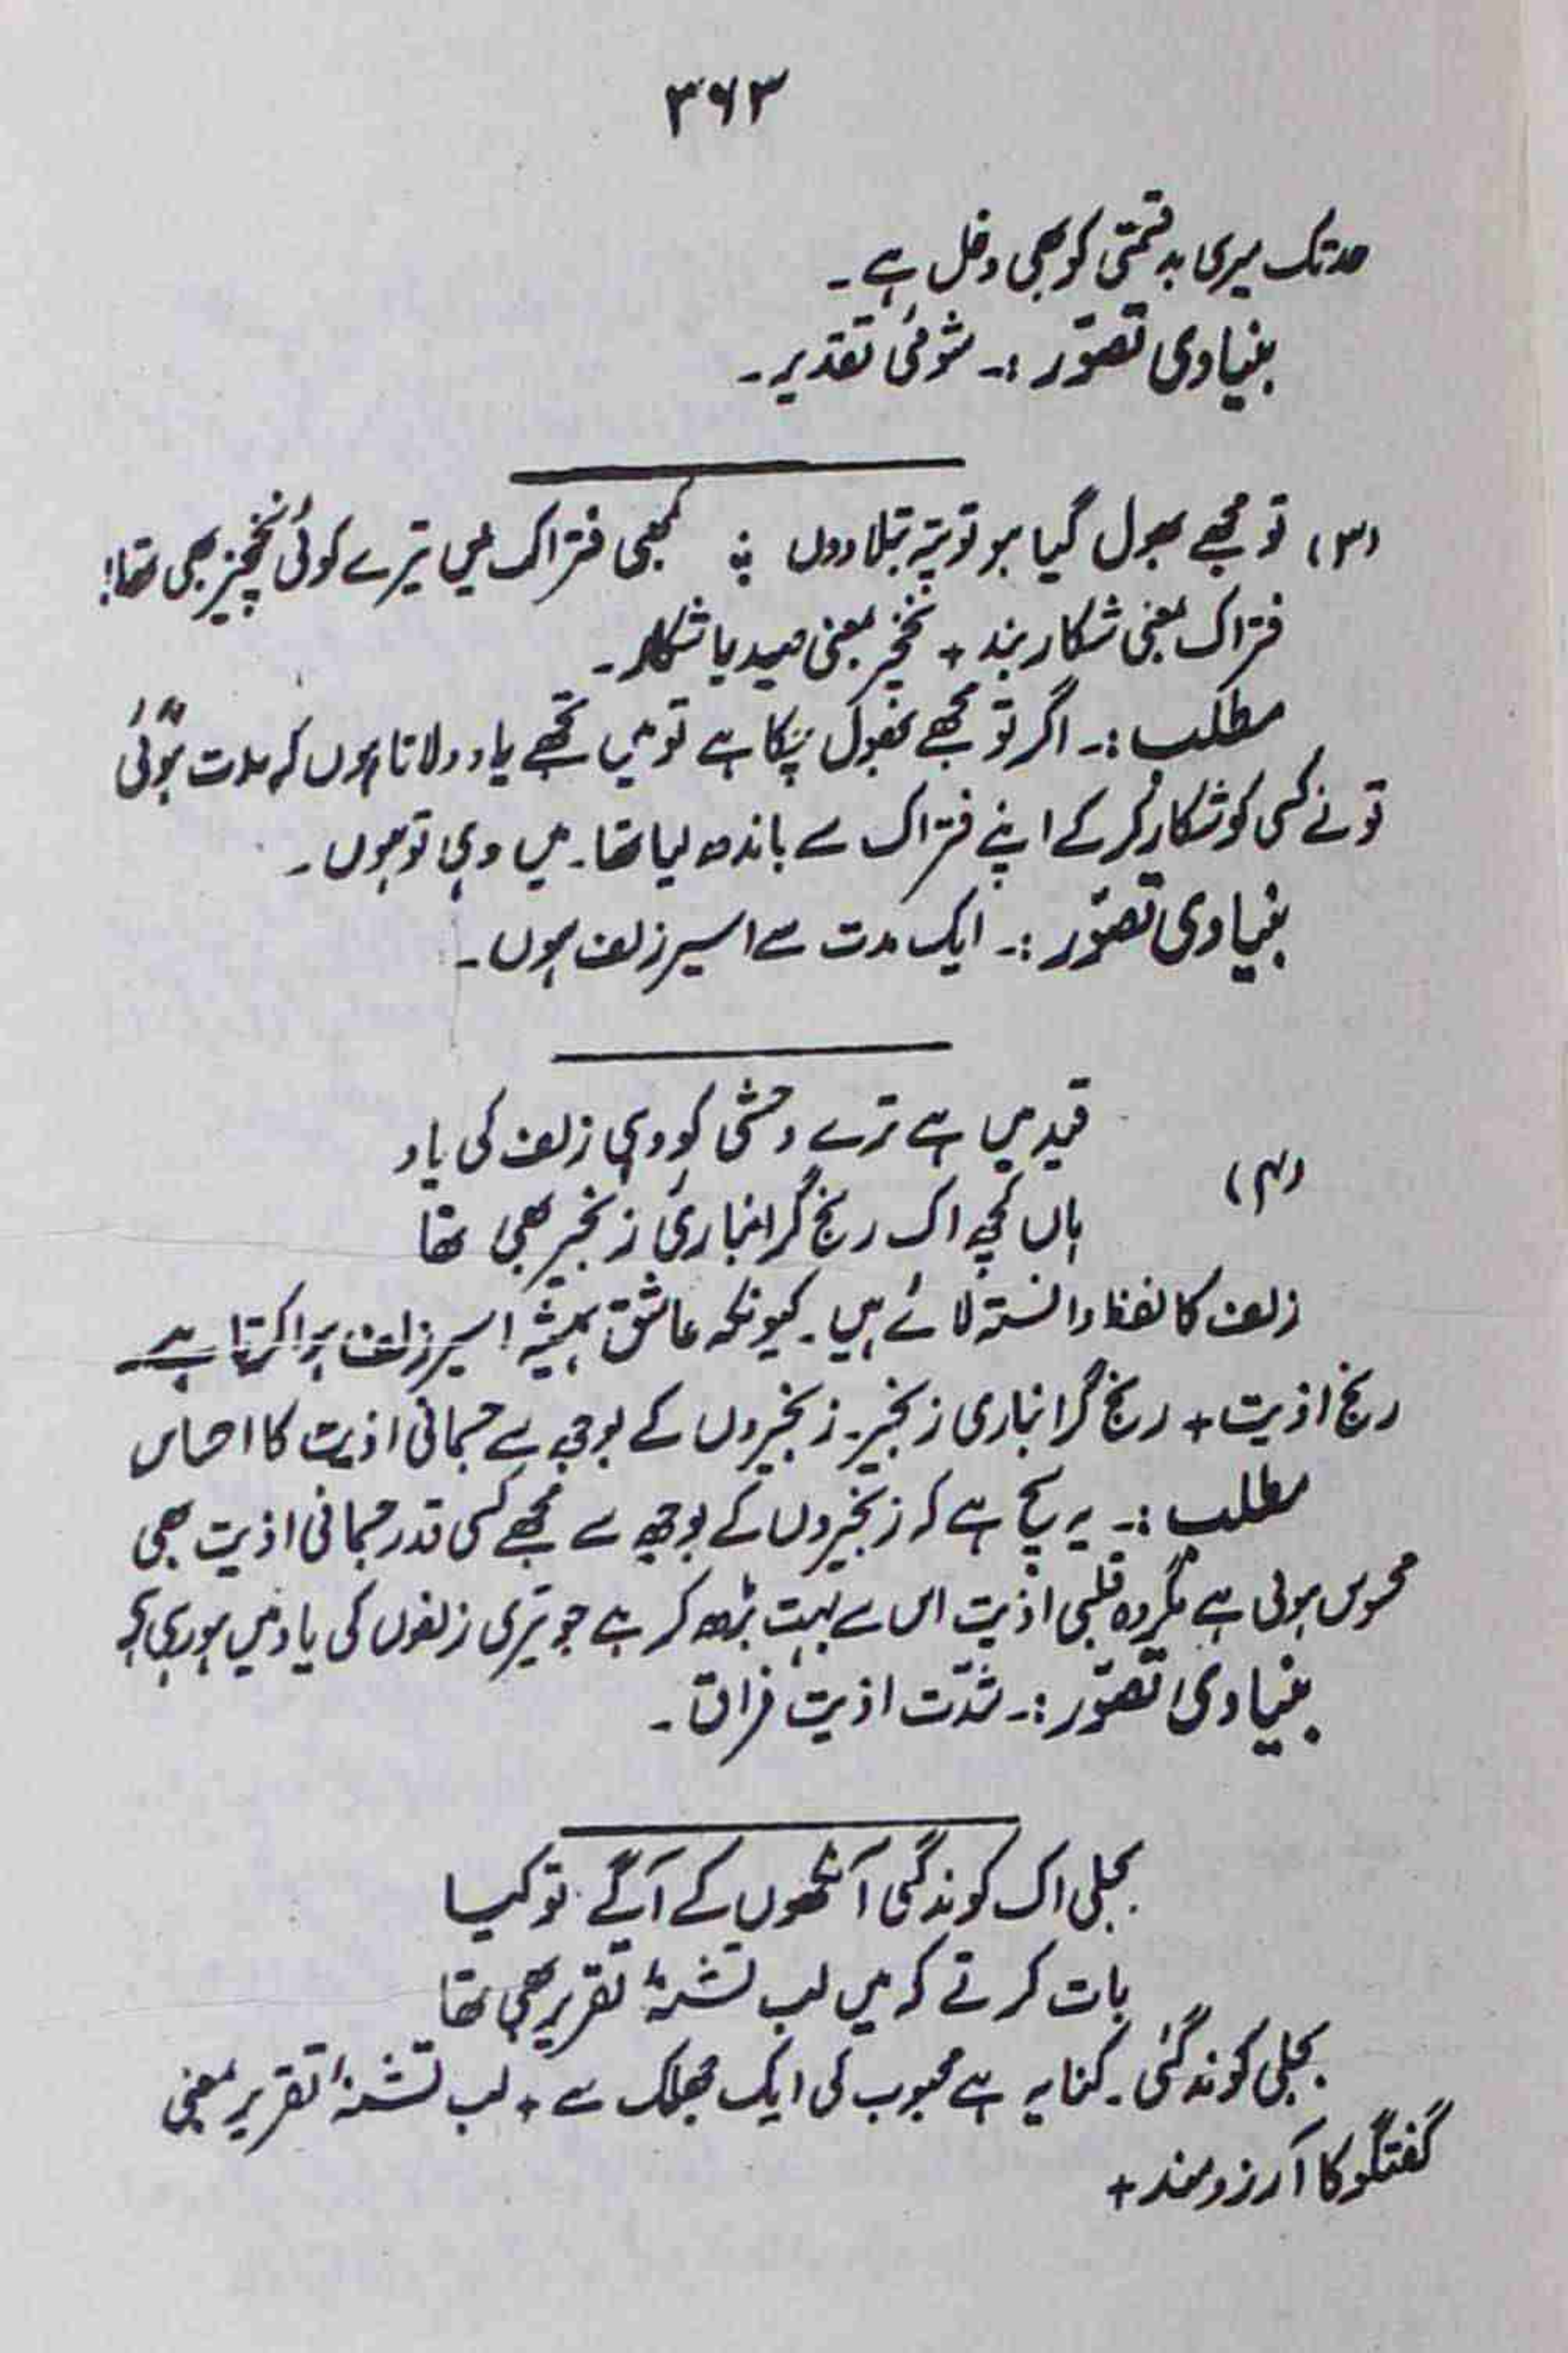 ۳۶۳
حد تک میری بد قسمتی کو بھی دخل ہے ۔
بنیادی تصوّر :۔ شومئی تقدیر ۔
(۳) تو مجھے بھول گیا ہو تو پتہ بتلا دوں ؛ کبھی فتراک میں تیرے کوئی نخچیر بھی تھا!
فتراک بمعنی شکار بند + نخچیر بمعنی صید یا شکار ۔
مطلب :۔ اگر تو مجھے بھول چکا ہے تو میں تجھے یاد دلاتا ہوں کہ مدت ہوئی
تو نے کسی کو شکار کر کے اپنے فتراک سے باندھ لیا تھا ۔ میں وہی تو ہوں ۔
بنیادی تصوّر :۔ ایک مدت سے اسیر زلف ہوں ۔
قید میں ہے ترے وحشی کو وہی زلف کی یاد
(۴)
ہاں کچھ اک رنج گرانباریٔ زنجیر بھی تھا
زلف کا لفظ دانستہ لائے ہیں ۔ کیونکہ عاشق ہمیشہ اسیر زلف ہوا کرتا ہے
رنج اذیت + رنج گرانباری زنجیر ۔ زنجیروں کے بوجھ سے جسمانی اذیت کا احساس
مطلب :۔ یہ سچ ہے کہ زنجیروں کے بوجھ سے مجھے کسی قدر جسمانی اذیت بھی
محسوس ہوتی ہے مگر وہ قلبی اذیت اس سے بہت بڑھ کر ہے جو تیری زلفوں کی یاد میں ہو رہی ہے
بنیادی تصوّر :۔ شدّت اذیت فراق ۔
بجلی اک کوند گئی آنکھوں کے آگے تو کیا
بات کرتے کہ میں لب تشنۂ تقریر بھی تھا
بجلی کوند گئی ۔ کنایہ ہے محبوب کی ایک جھلک سے + لب تشنۂ تقریر بمعنی
گفتگو کا آرزو مند +